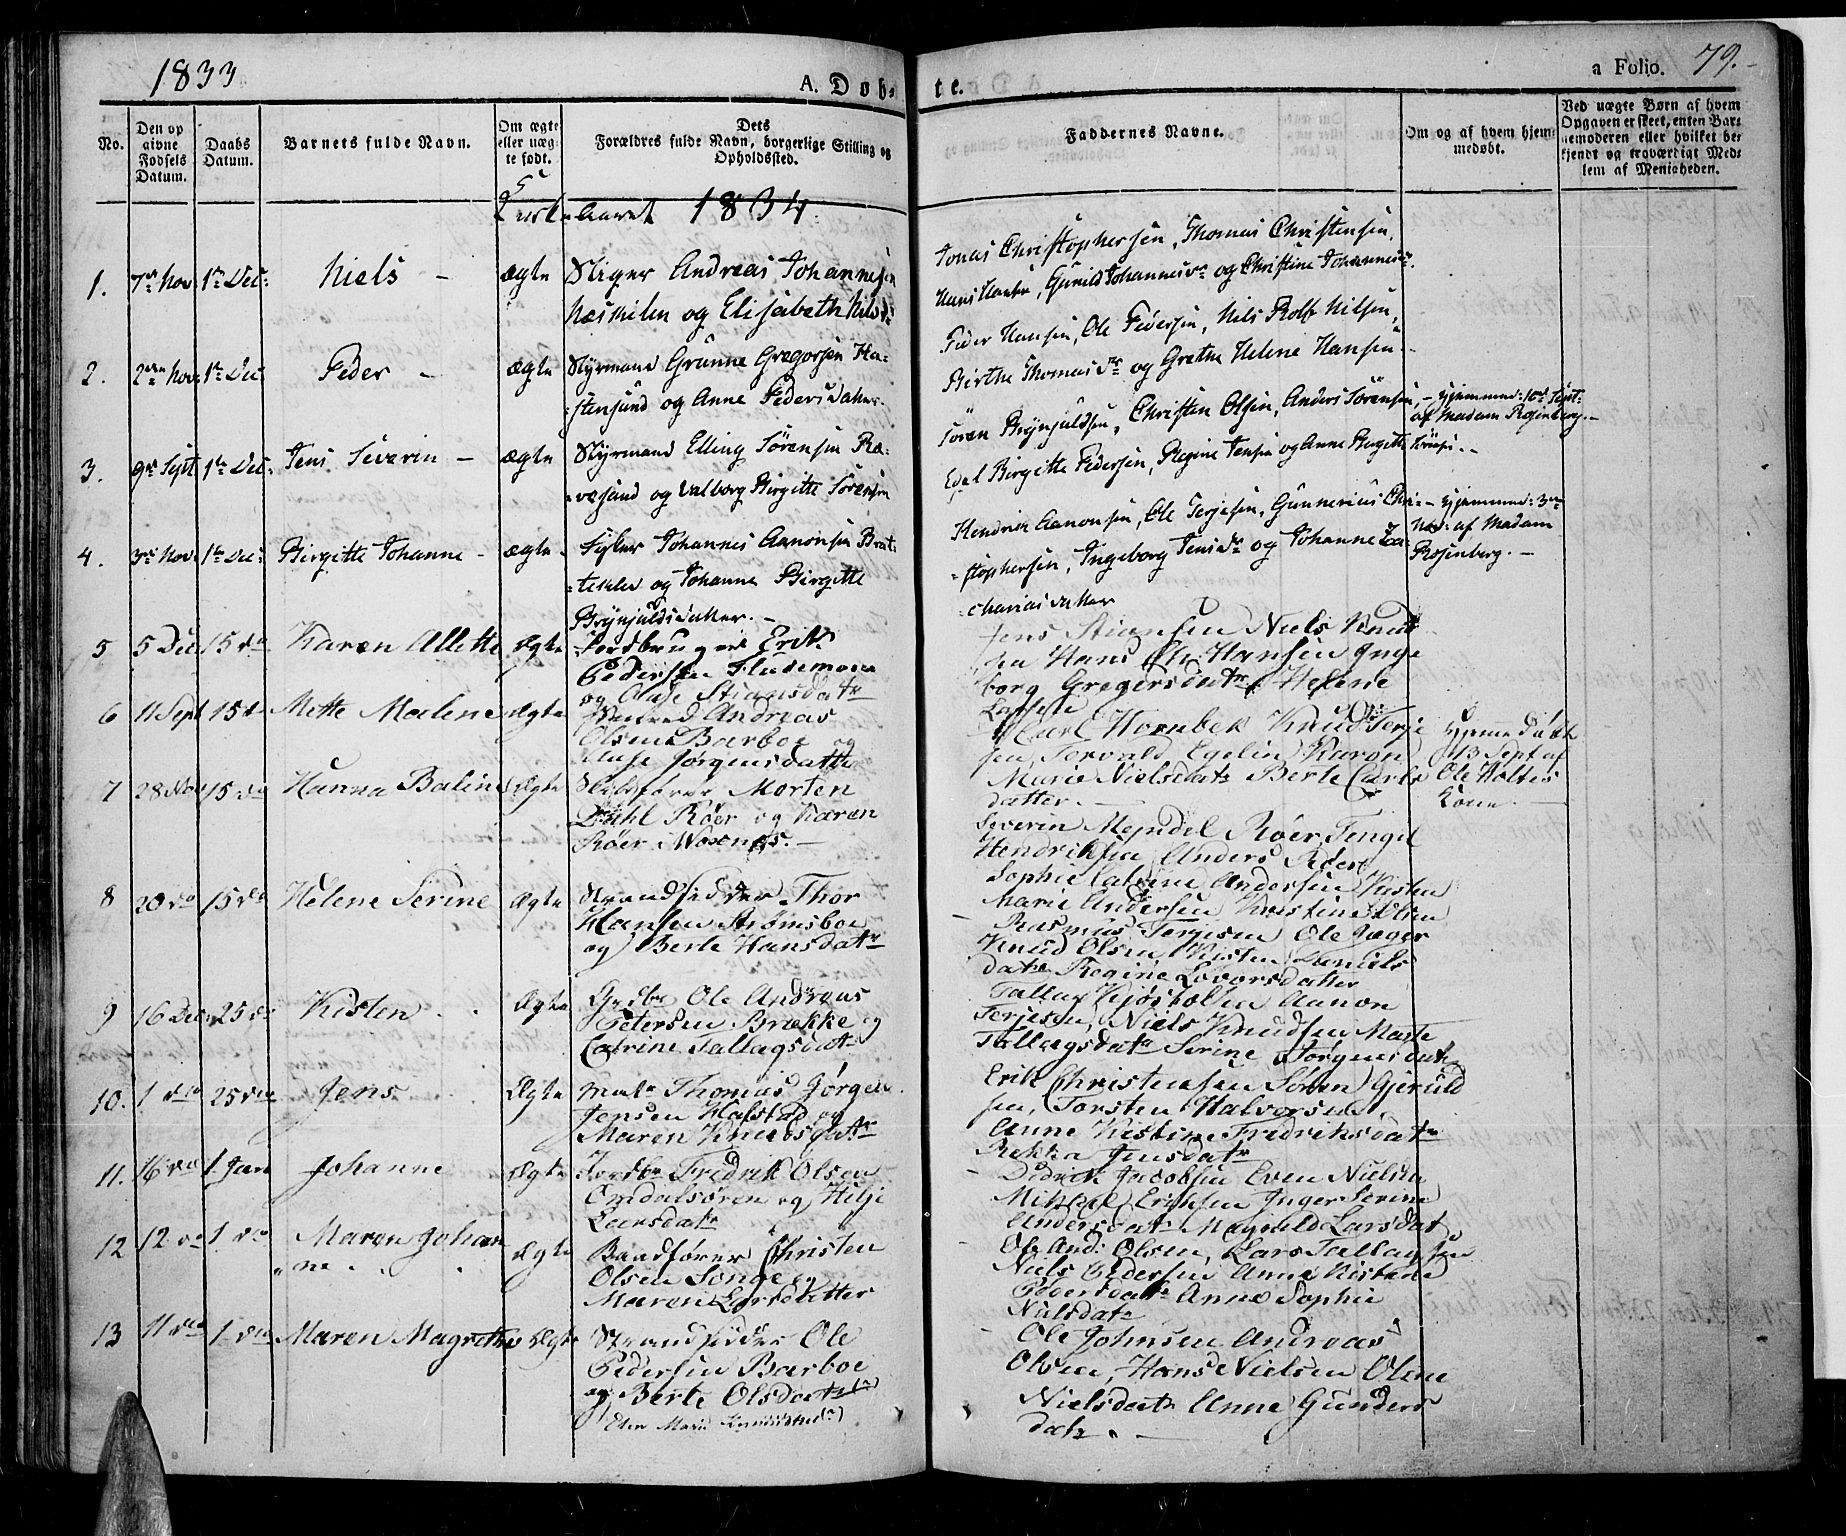 1833
A. Døb-
te.
a Folio. 79.
No.
Den op
givne
Fødsels
Datum.
Daabs
Datum.
Barnets fulde Navn.
Om ægte
eller uæg-
te født.
Dets
Forældres fulde Navn, borgerlige Stilling og
Opholdssted.
Faddernes Navne.
Om og af hvem hjem-
medøbt.
Ved uægte Børn af hvem
Opgaven er skeet, enten Bar-
nemoderen eller hvilket be-
kjendt og troværdigt Med-
lem af Menigheden.
Kirke Aaret 1834.
1. 7de Nov 1te Dec: Niels - ægte
Andreas Johannesen
og Elisabeth Nilsd
Jonas Christophersen, Thomas Christensen,
Gunild Johannesdr og Christine Johannesdr.
2. 2den Nov: 1te Dec Peder - Ægte
Styrmand Grunne Gregorsen Ha-
=stensund og Anne Pedersdatter.
Peder Hansen, Ole Pedersen, Nils Rolf Nilsen,
Birthe Thomasdr og Grethe Helene Hansen.
3. 9de Sept 1te Dec: Jens Severin - Ægte
Styrmand Elling Sørensen Ræ-
=vesand og Valborg Birgitte Sørensen
Søren Brynjuldsen, Christen Olsen, Anders Sørensen,
Edel Birgitte Pedersen, Regine Jensen og Anne Birgitte Sørens. -
- Hjemmed: 10de Sept:
af Madam Rosenberg. -
4. 3de Nov: 1te Dec: Birgitte Johanne - Ægte -
Johannes Aanonsen Brat-
=teklev og Johanne Birgitte
Brynjuldsdatter. -
Hendrik Aanonsen, Ole Terjesen, Gunnerius Chri-
=stophersen, Ingeborg Jensdr og Johanne Za-
=chariasdatter
- Hjemmed: 3de
Nov: af Madam
Rosenberg. -
5 5 Dec 15 do Karen Allette Ægte
Jordbruger Erik
Pedersen Fludemoen
og Olufe Stiansdatr
Jens Stiansen Niels Knud
sen Hans Chr Hansen Inge
borg Gregersdatr Helene
6 11 Sept 15 do Mette Malene Ægte
Andreas
Olsen Barboe og
Oluse Jørgensdatte
Carl Hornbek Knud Terje
sen, Torvald Egelin Karen
Marie Nielsdatr Berte Carls
datter. -
Hjemmedøbt
13 Sept af
Ole Holtes
Kone -
7 28 Nov 15 do Hanna Baline Ægte
Skibsfører Morten
Dahl Røer og Karen
Røer Moxenæs. -
Severin Meyndel Røer Tengel
Hendriksen Anders Peders
Sophie Catrine Andersen Kisten
Marie Andersen Kristine Olsen
8 20 do 15 do Helene Serine Ægte
Strandsidder Thor
Hansen Strømsboe
og Berte Hansdatr
- Rasmus Terjesen Ole Jæger
Knud Olsen Kisten Daniels
datr Regine Lovorsdatter
9 16 Dec 25 do Kisten . . Ægte
Grdbr Ole Andreas
Petersen Brække og
Catrine Tallagsdatr
Tallag Kjøstolsen Aanon
Terjesen, Niels Knudsen Marte
Tallagsdatr Serine Jørgensdatr
10. 1 do 25 do Jens Ægte
Matr Thomas Jørgen
Jensen Hafstad og
Maren Knudsdatr
Erik Christensen Søren Gjeruld
sen, Torsten Halvorsen,
Anne Kistine Fredriksdatr
Rekka Jensdatr
11. 16 do 1 Jan Johanne Ægte
Jordbr Fredrik Olsen
Omdalsøren og Hilje
Larsdatr
- Didrik Jacobsen Even Nielsen
Mikael Eriksen Inger Serine
Andersdatr Magnild Larsdat
12 12 do 1 do Maren Johan
"ne . . . Ægte
Baadfører Christen
Olsen Songe og
Maren Larsdatter
Ole And: Olsen, Lars Tallagsen
Niels Pedersen Anne Kistene
Pedersdatr Anne Sophie
Nielsdatr
13 11 do 1 do Maren Magrethe Ægte
Strandsidder Ole
Pedersen Barboe
og Berte Olsdatr (a)
Ellen Marie (a)
- Ole Johnsen Andreas
Olsen, Hans Nielsen Oline
Nielsdatr Anne Gunders
datr. -